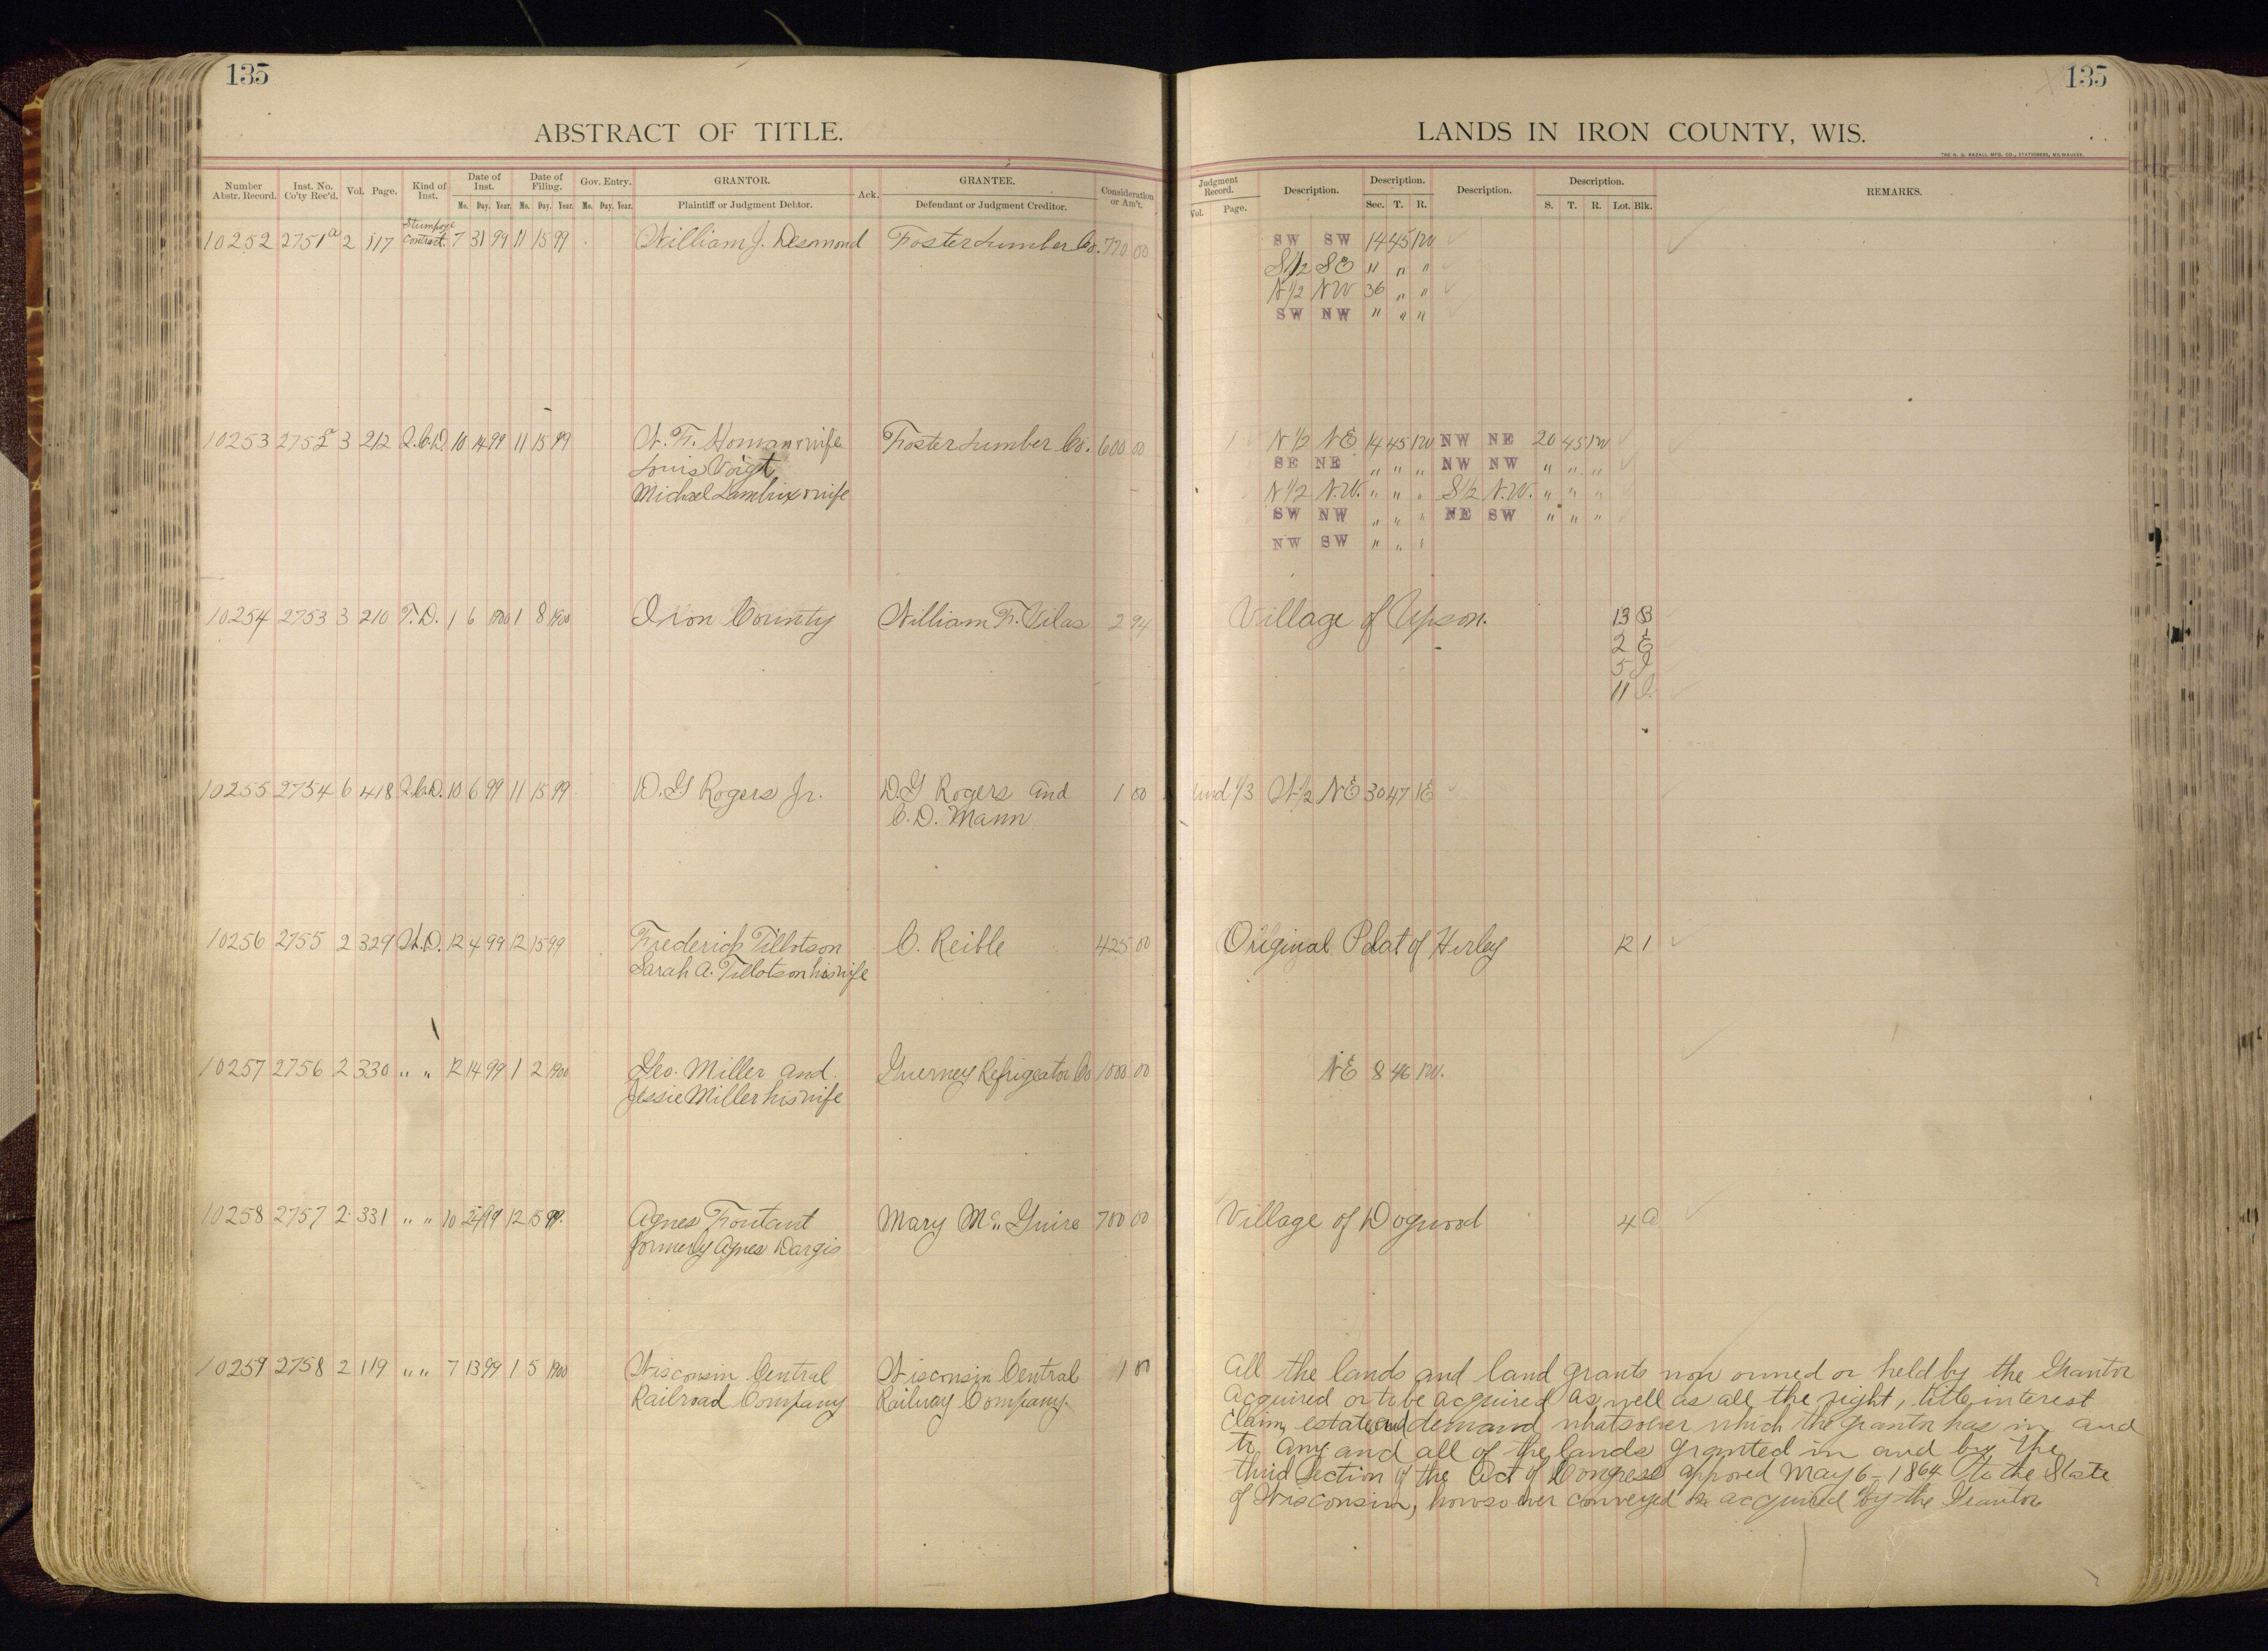 135
135
ABSTRACT OF TITLE.
LANDS IN IRON COUNTY, WIS.
THE H. G. RAZALL MFG. CO., STATIONERS, MILWAUKEE.
Number Abstr. Record. Inst. No. Co'ty Rec'd. Vol. Page. Kind of Inst. Date of Inst. Date of Filing. Gov. Entry. GRANTOR. Ack. GRANTEE. Consideration or Am't.
Mo. Day. Year. Mo. Day. Year. Mo. Day. Year. Plaintiff or Judgment Debtor. Defendant or Judgment Creditor.
Judgment Record. Description. Description. Description. Description. REMARKS.
Vol. Page. Sec. T. R. S. T. R. Lot. Blk.
Stumpage
10252 2751a 2 117 Contract. 7 31 99 11 15 99 William J. Desmond Foster Lumber Co. 770 00 SW SW 14 45 1W
S1/2 SE " " "
N1/2 NW 36 " "
SW NW " " "
10253 2752a 3 212 Q.C.D. 10 14 99 11 15 99 W. F. Homan & wife Foster Lumber Co. 600 00 N1/2 NE 14 45 1W NW NE 20 45 1W
Louis Voigt SE NE " " " NW NW " " "
Michael Lambrix & wife N1/2 N.W. " " " S1/2 N.W. " " "
SW NW " " " NE SW " " "
NW SW " " "
10254 2753 3 210 T.D. 1 6 1900 1 8 1900 Iron County William F. Vilas 2 94 Village of Upson. 13 B
2 E
5 I
11 I.
10255 2754 6 418 Q.C.D. 10 6 99 11 15 99 D. G Rogers Jr. D. G Rogers and 1 00 und 1/3 W1/2 NE 30 47 1E
C. D. Mann
10256 2755 2 329 W.D. 12 4 99 12 15 99 Frederick Tillotson C. Reible 425 00 Original Plat of Hurley 12 1
Sarah A. Tillotson his wife
10257 2756 2 330 " " 12 14 99 1 2 1900 Geo. Miller and Guerney Refrigeator Co 1000 00 NE 8 46 1W.
Jessie Miller his wife
10258 2757 2 331 " " 10 99 12 15 99. Agnes Mary Mc. Guire 700 00 Village of Dogwood 4 a
formerly Agnes Dargis
10259 2758 2 119 " " 7 13 99 1 5 1900 Wisconsin Central Wisconsin Central 1 00 All the lands and land grants now owned or held by the Grantor
Railroad Company Railway Company. acquired or to be acquired as well as all the right, title, interest
claim, estate and demand whatsoever which the grantor has in and
to any and all of the lands granted in and by the
third Section of the Act of Congress approved May 6- 1864 to the State
of Wisconsin, howsoever conveyed or acquired by the Grantor